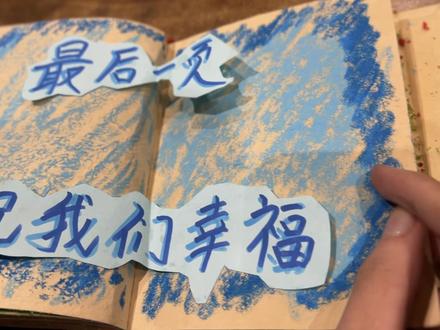 最后一页
我们幸福